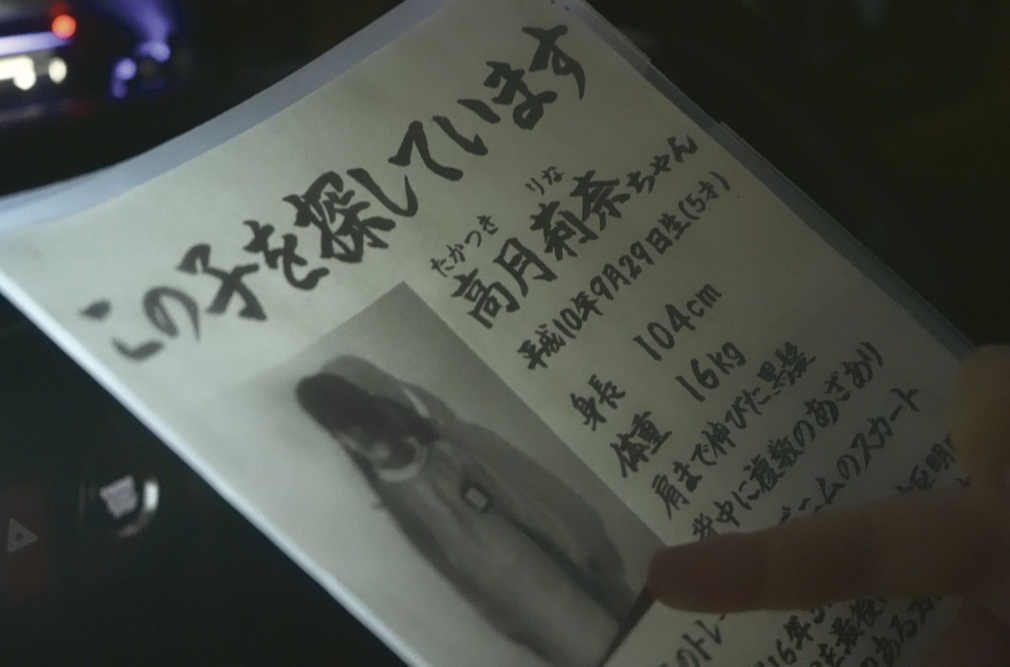 この子を探しています
たかつき りな
高月莉奈ちゃん
平成10年9月29日生(5才)
身長 104cm
体重 16kg
肩まで伸びた黒髪
背中に複数のあざあり
デニムのスカート
のトレ
16年
を最後
のある方